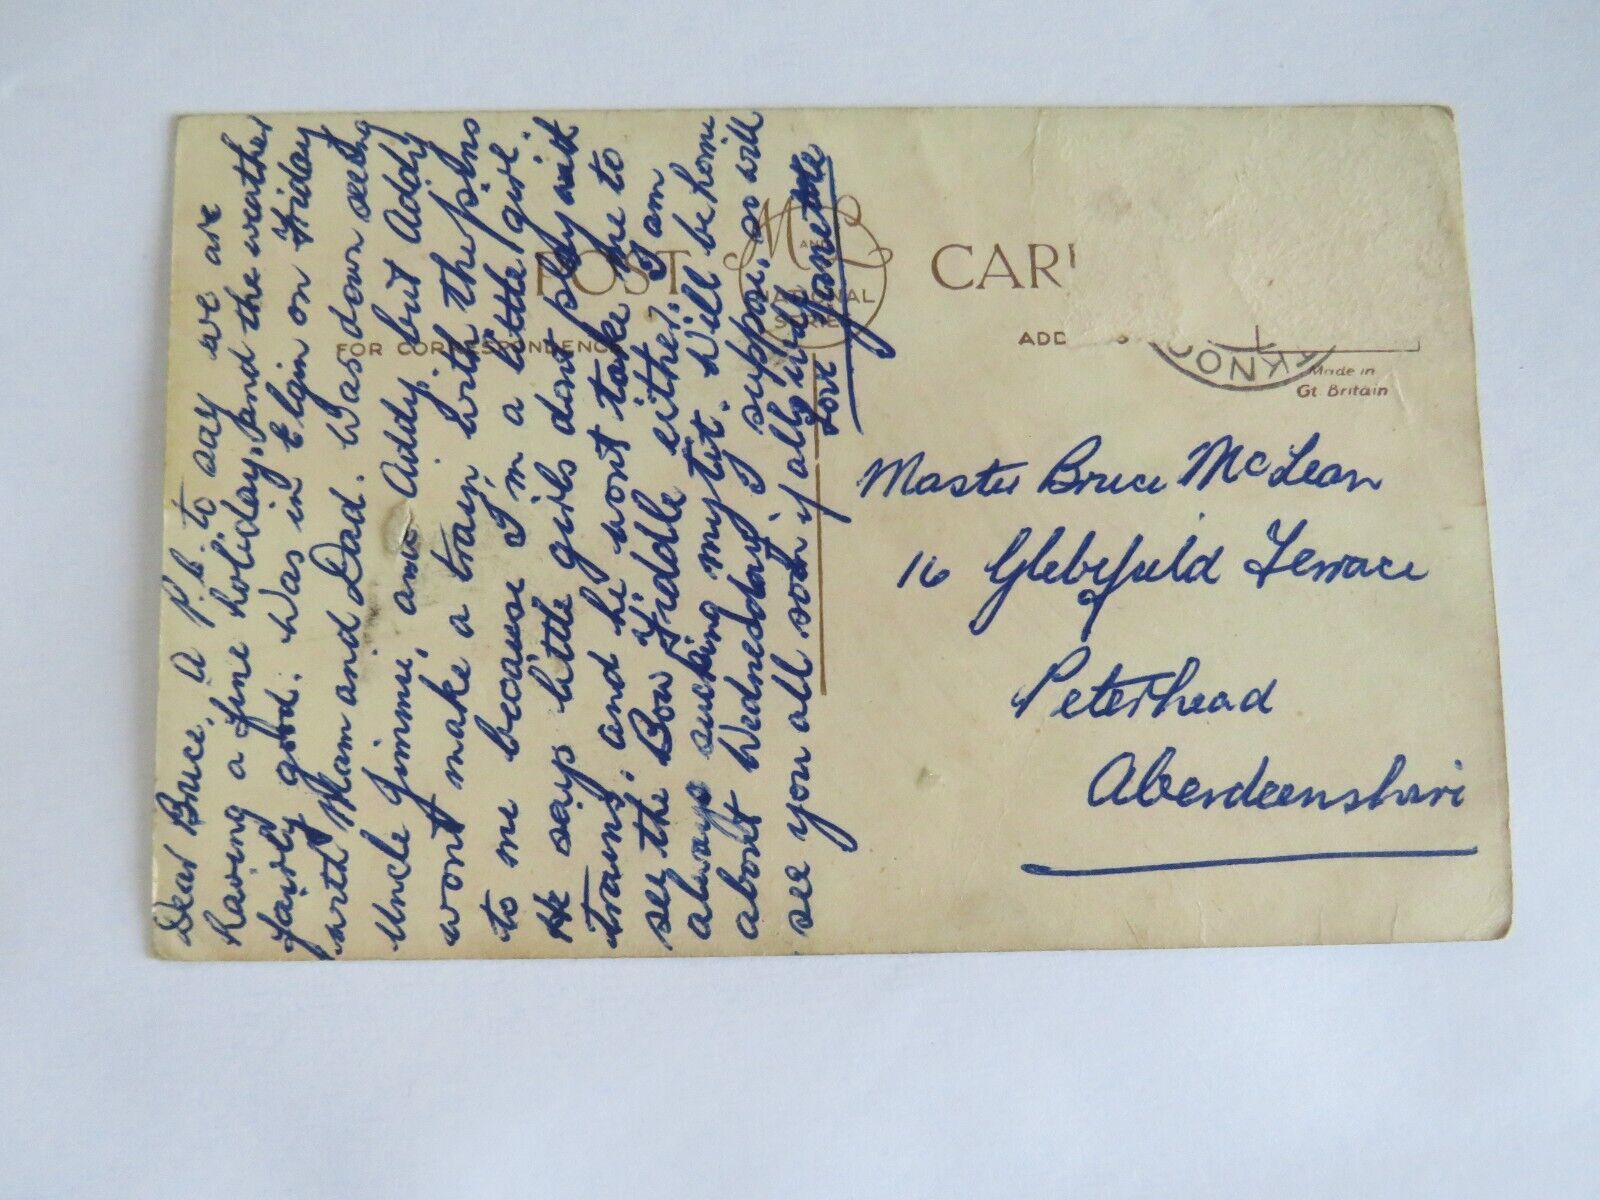 Dear Bruce, A P.C. to say we are
having a fine holiday, and the weather
fairly good. Was in Elgin on Friday
with Mam and Dad. Was down seeing
Uncle Jimmie, and Addy, but Addy
wont make a train with the pins
to me because I'm a little girl.
He says little girls dont play with
trains, and he wont take me to
see the Bow Fiddle either. I am
always sucking my tut. Will be home
about Wednesday I suppose, so will
see you all soon if all's well
Love Janette
POST CAR
M AND L
NATIONAL
SERIES
FOR CORRESPONDENCE
ADD S
KNO
Made in
Gt. Britain
Master Bruce McLean
16 Glebefield Terrace
Peterhead
Aberdeenshire